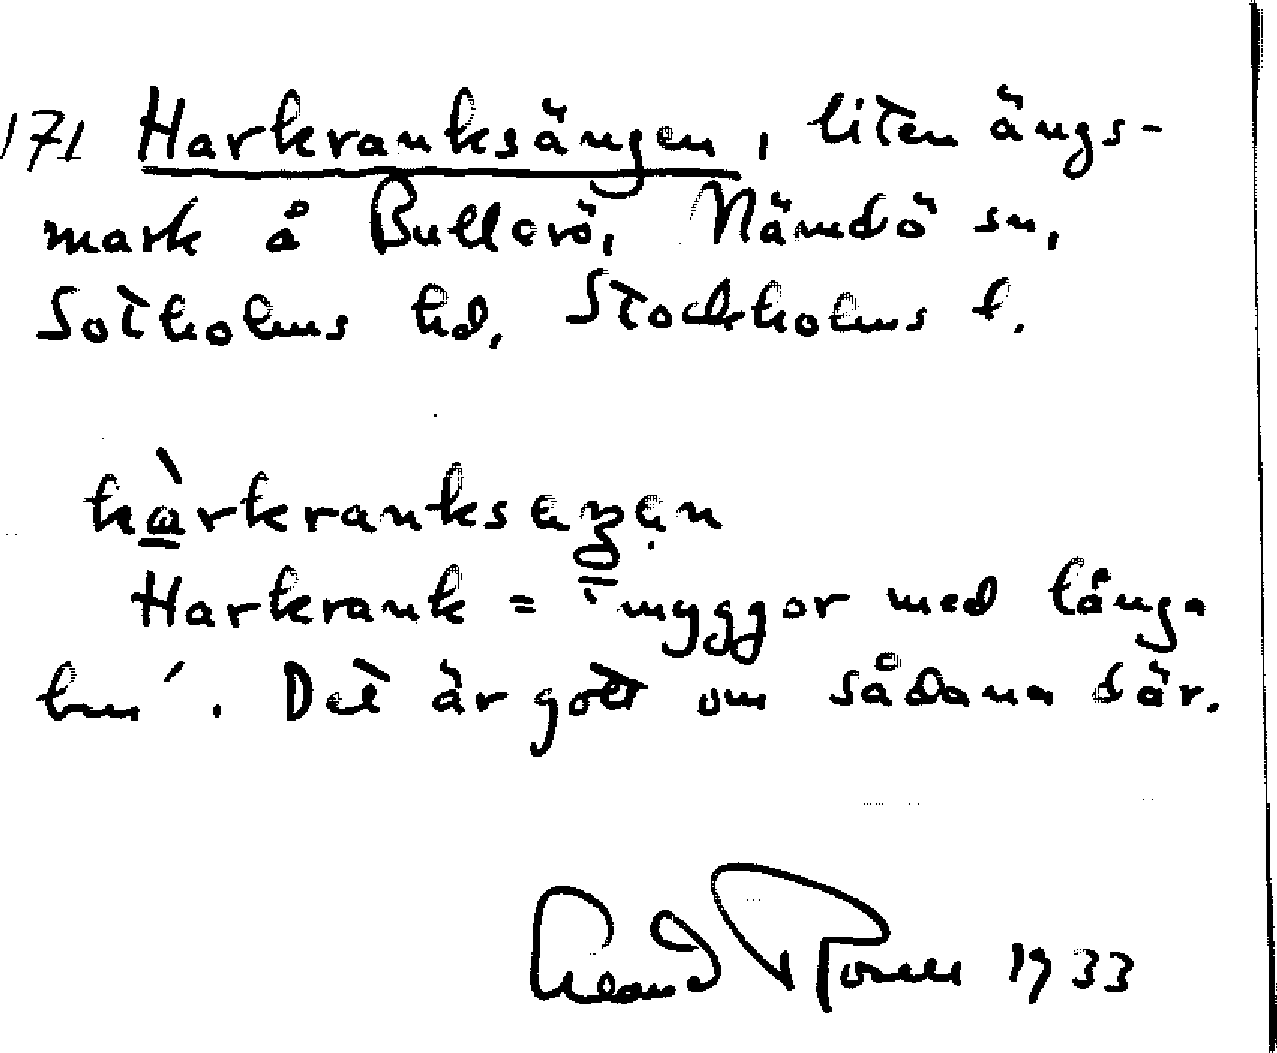 171 Harkranksängen, liten ängs-
mark å Bullerö, Nämdö sn,
Sotholms hd, Stockholms l.
hàrkranksęŋen
Harkrank = 'myggor med långa
ben'. Det är gott om sådana där.
1933